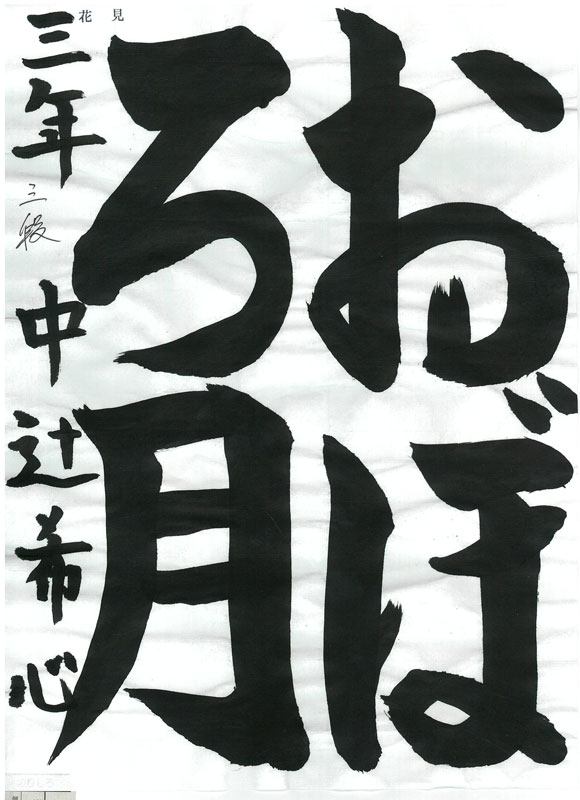 おぼ
ろ月
花見
三年 中辻希心
三段